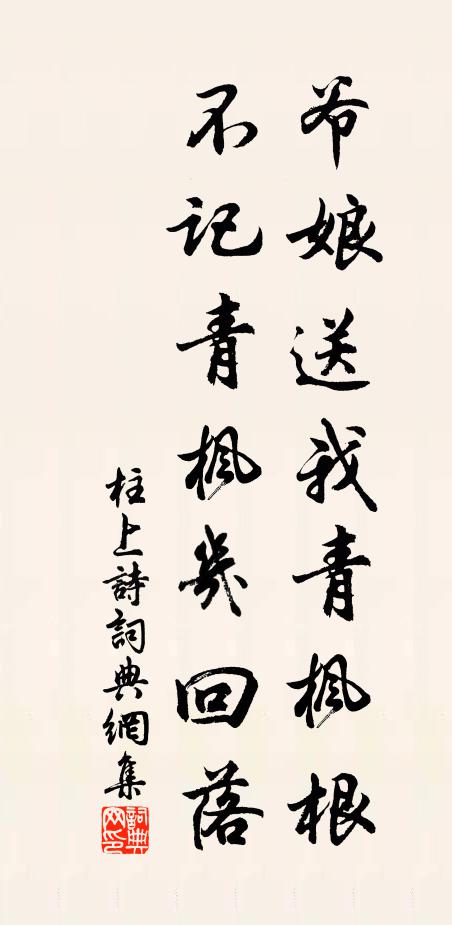 爷娘送我青枫根
不记青枫几回落
柱上詩詞典網集
詞典网印